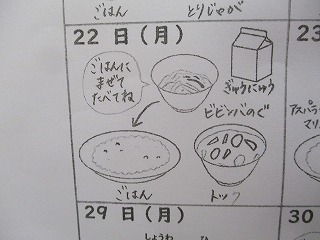 ごはん とりじゃが
22 日(月)
23
ごはんに
まぜて
たべてね
ぎゅうにゅう
ビビンバのぐ
アスパラ
マリ
ごはん
トック
29 日(月)
30
しょうわ